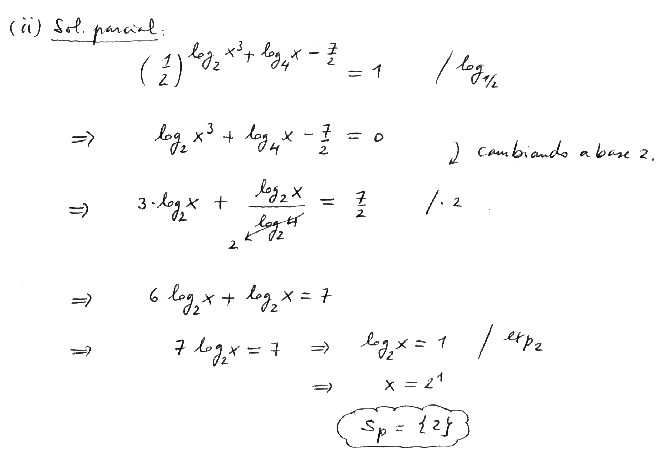 (ii) Sol. parcial:
(1/2)^(log₂ x³ + log₄ x − 7/2) = 1 / log_(1/2)
⇒ log₂ x³ + log₄ x − 7/2 = 0
cambiando a base 2.
⇒ 3·log₂ x + log₂ x / log₂ 4 = 7/2 /·2
2
⇒ 6 log₂ x + log₂ x = 7
⇒ 7 log₂ x = 7 ⇒ log₂ x = 1 / exp₂
⇒ x = 2¹
Sp = {2}